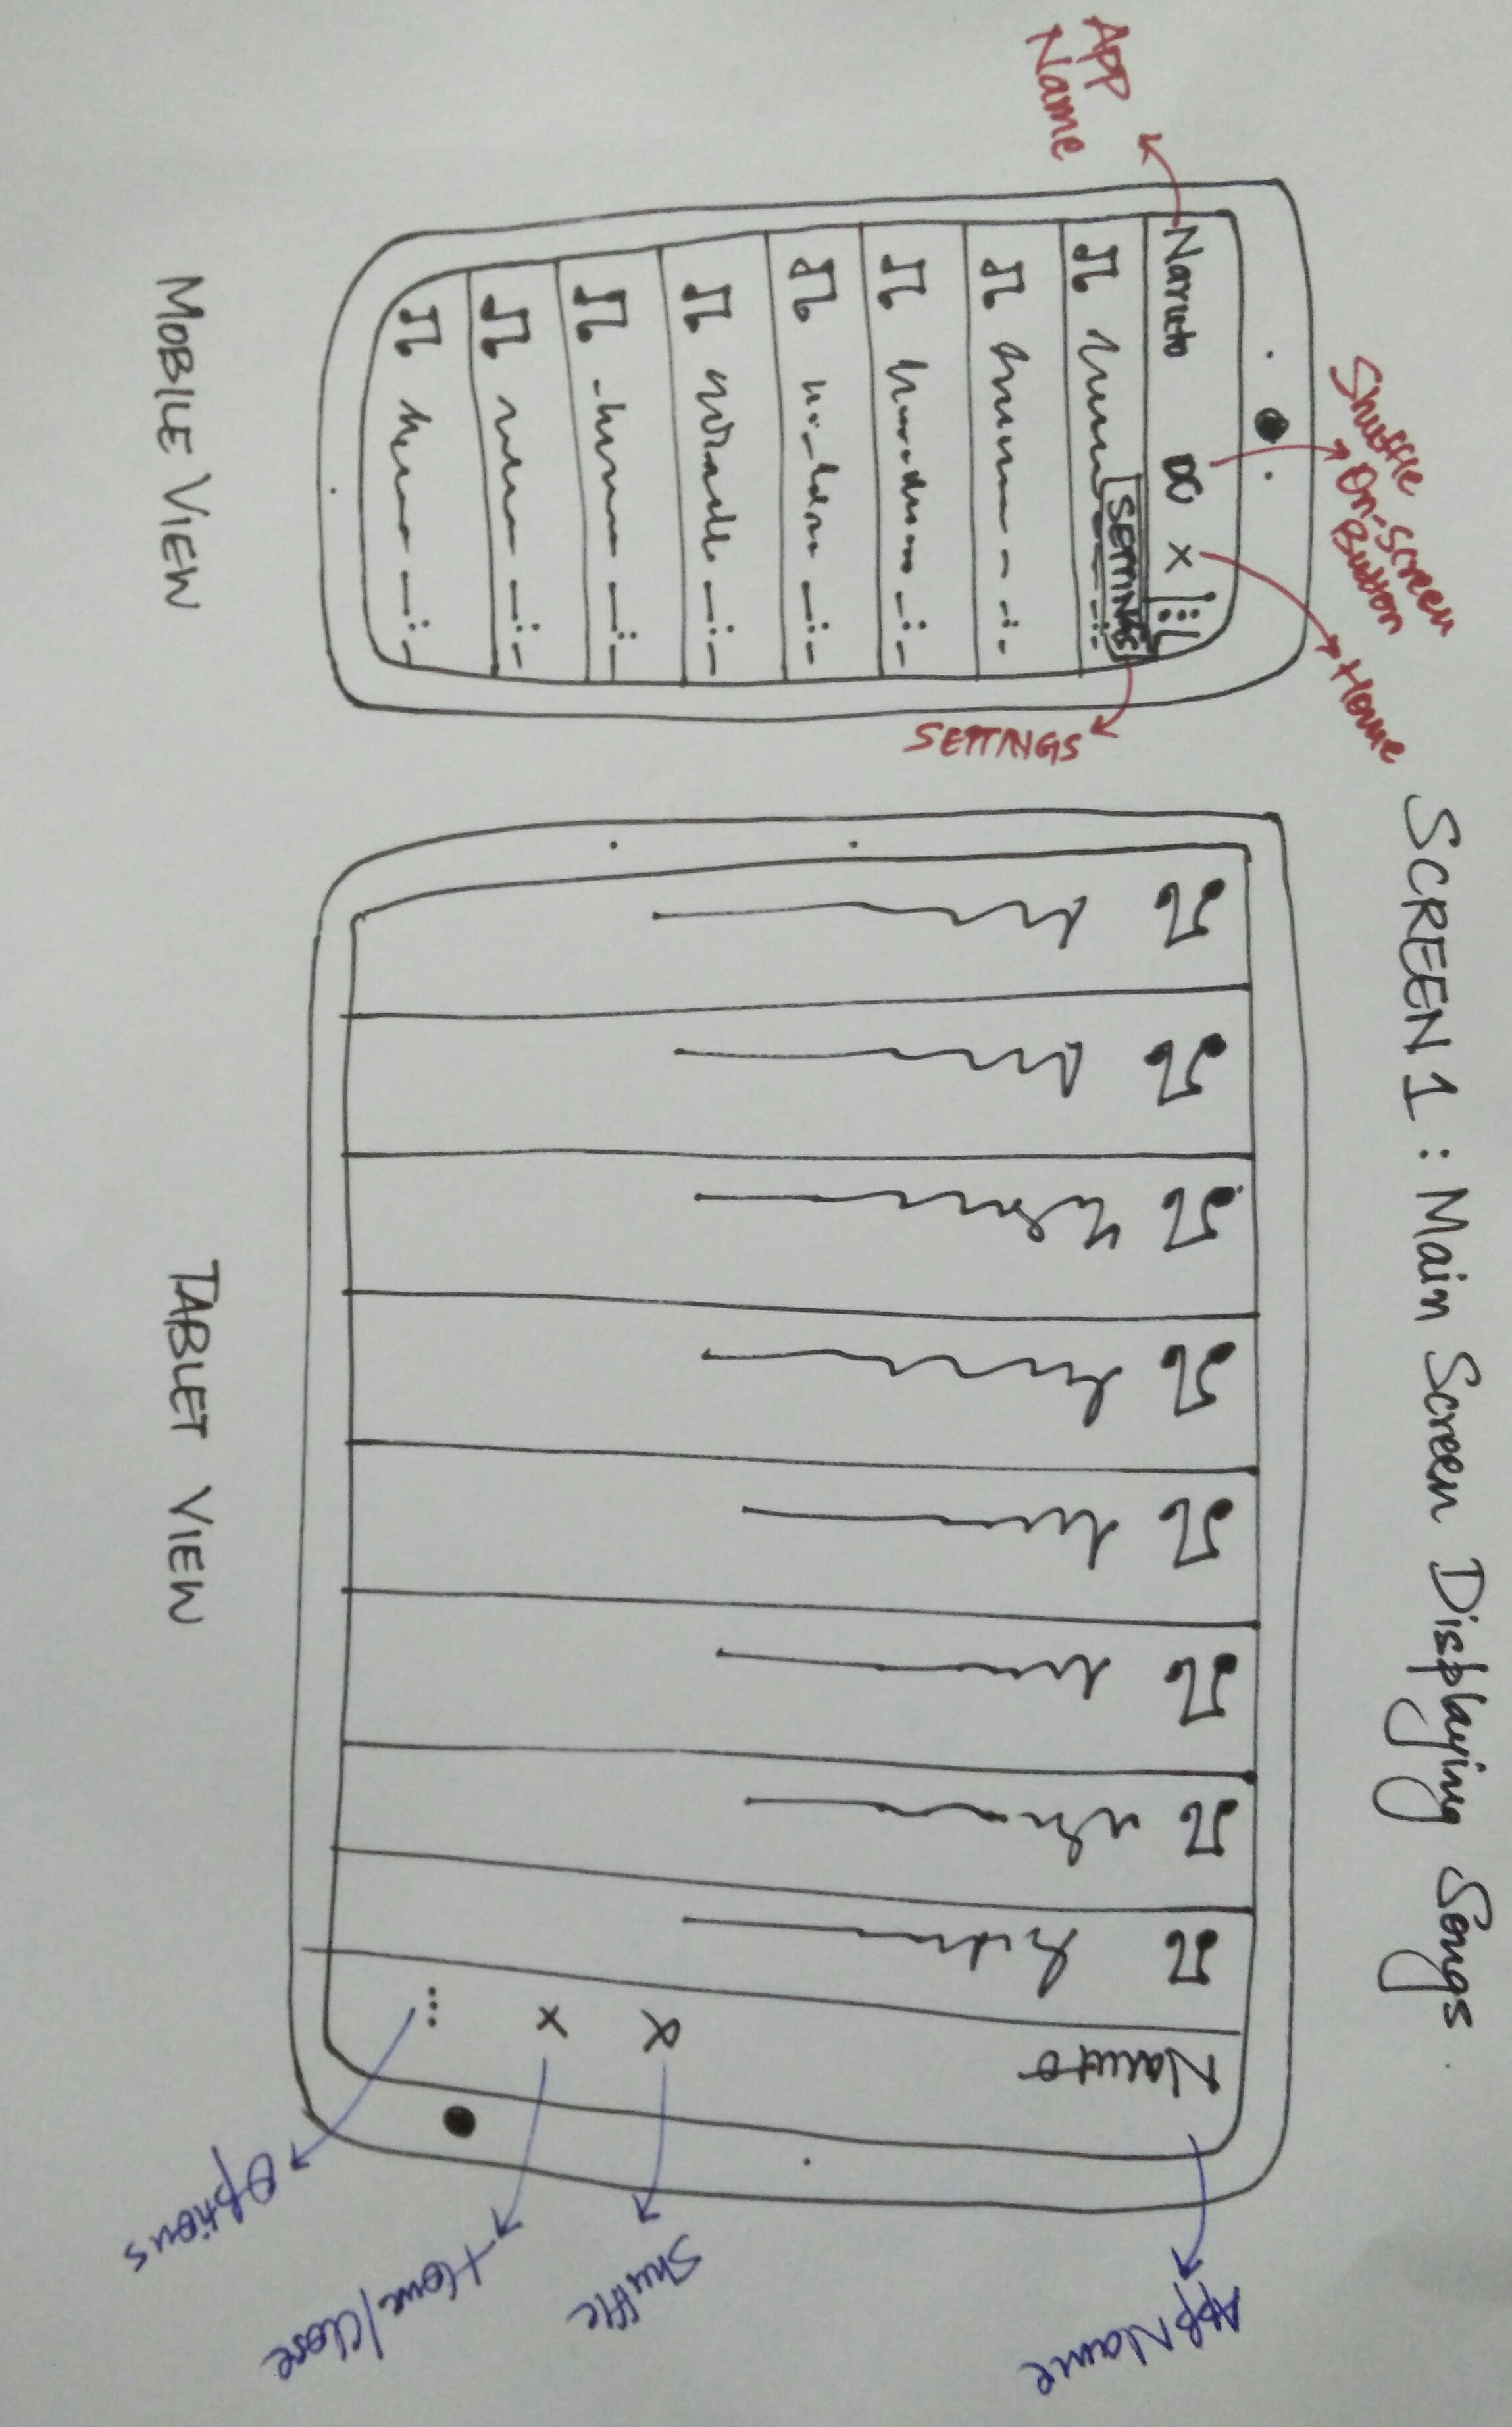 SCREEN 1 : Main Screen Displaying Songs.
APP
Name
Shuffle
On-Screen
Button
Home
Naruto
X
SETTINGS
SETTINGS
MOBILE VIEW
App Name
Shuffle
Home/Close
Options
Naruto
X
TABLET VIEW